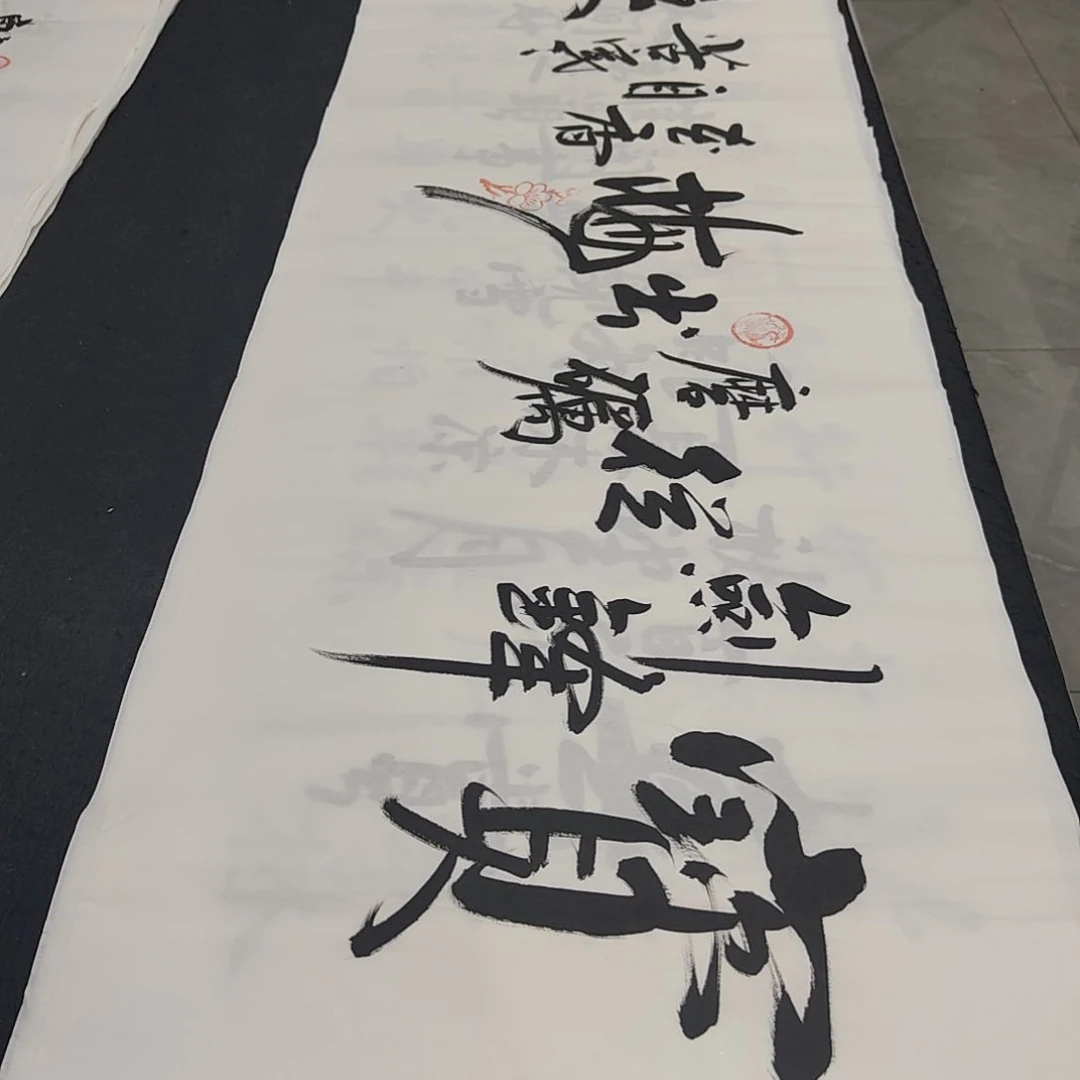 寶
劍鋒
從
磨礪
出
梅
花香
自
苦寒